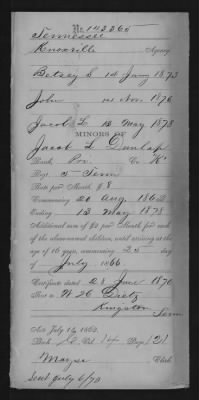 No. 142265
Tennessee
Knoxville Agency.
Betsey S 1st Jany 1873
John 1st Nov. 1876
Jacob L. 13 May 1878
MINORS OF
Jacob L Dunlap
Rank, Pvr. Co. K
Regt. 5 Tenn
Rate per Month $8
Commencing 20 Aug. 1862
Ending 13 May 1878
Additional sum of $2 per Month for each
of the above-named children, until arriving at the
age of 16 years, commencing 25 day
of July 1866
Certificate dated 28 June 1870
Sent to W 26
Kingston
Tenn
Act July 14, 1862.
Book Vol. Page 21
Clerk
Sent July 6/70